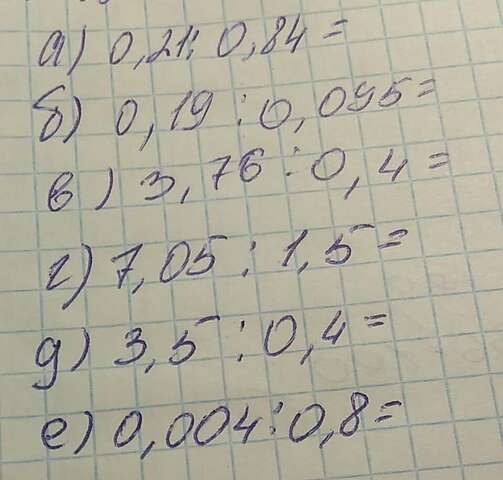 а) 0,21:0,84=
б) 0,19:0,095=
в) 3,76:0,4=
г) 7,05:1,5=
д) 3,5:0,4=
е) 0,004:0,8=